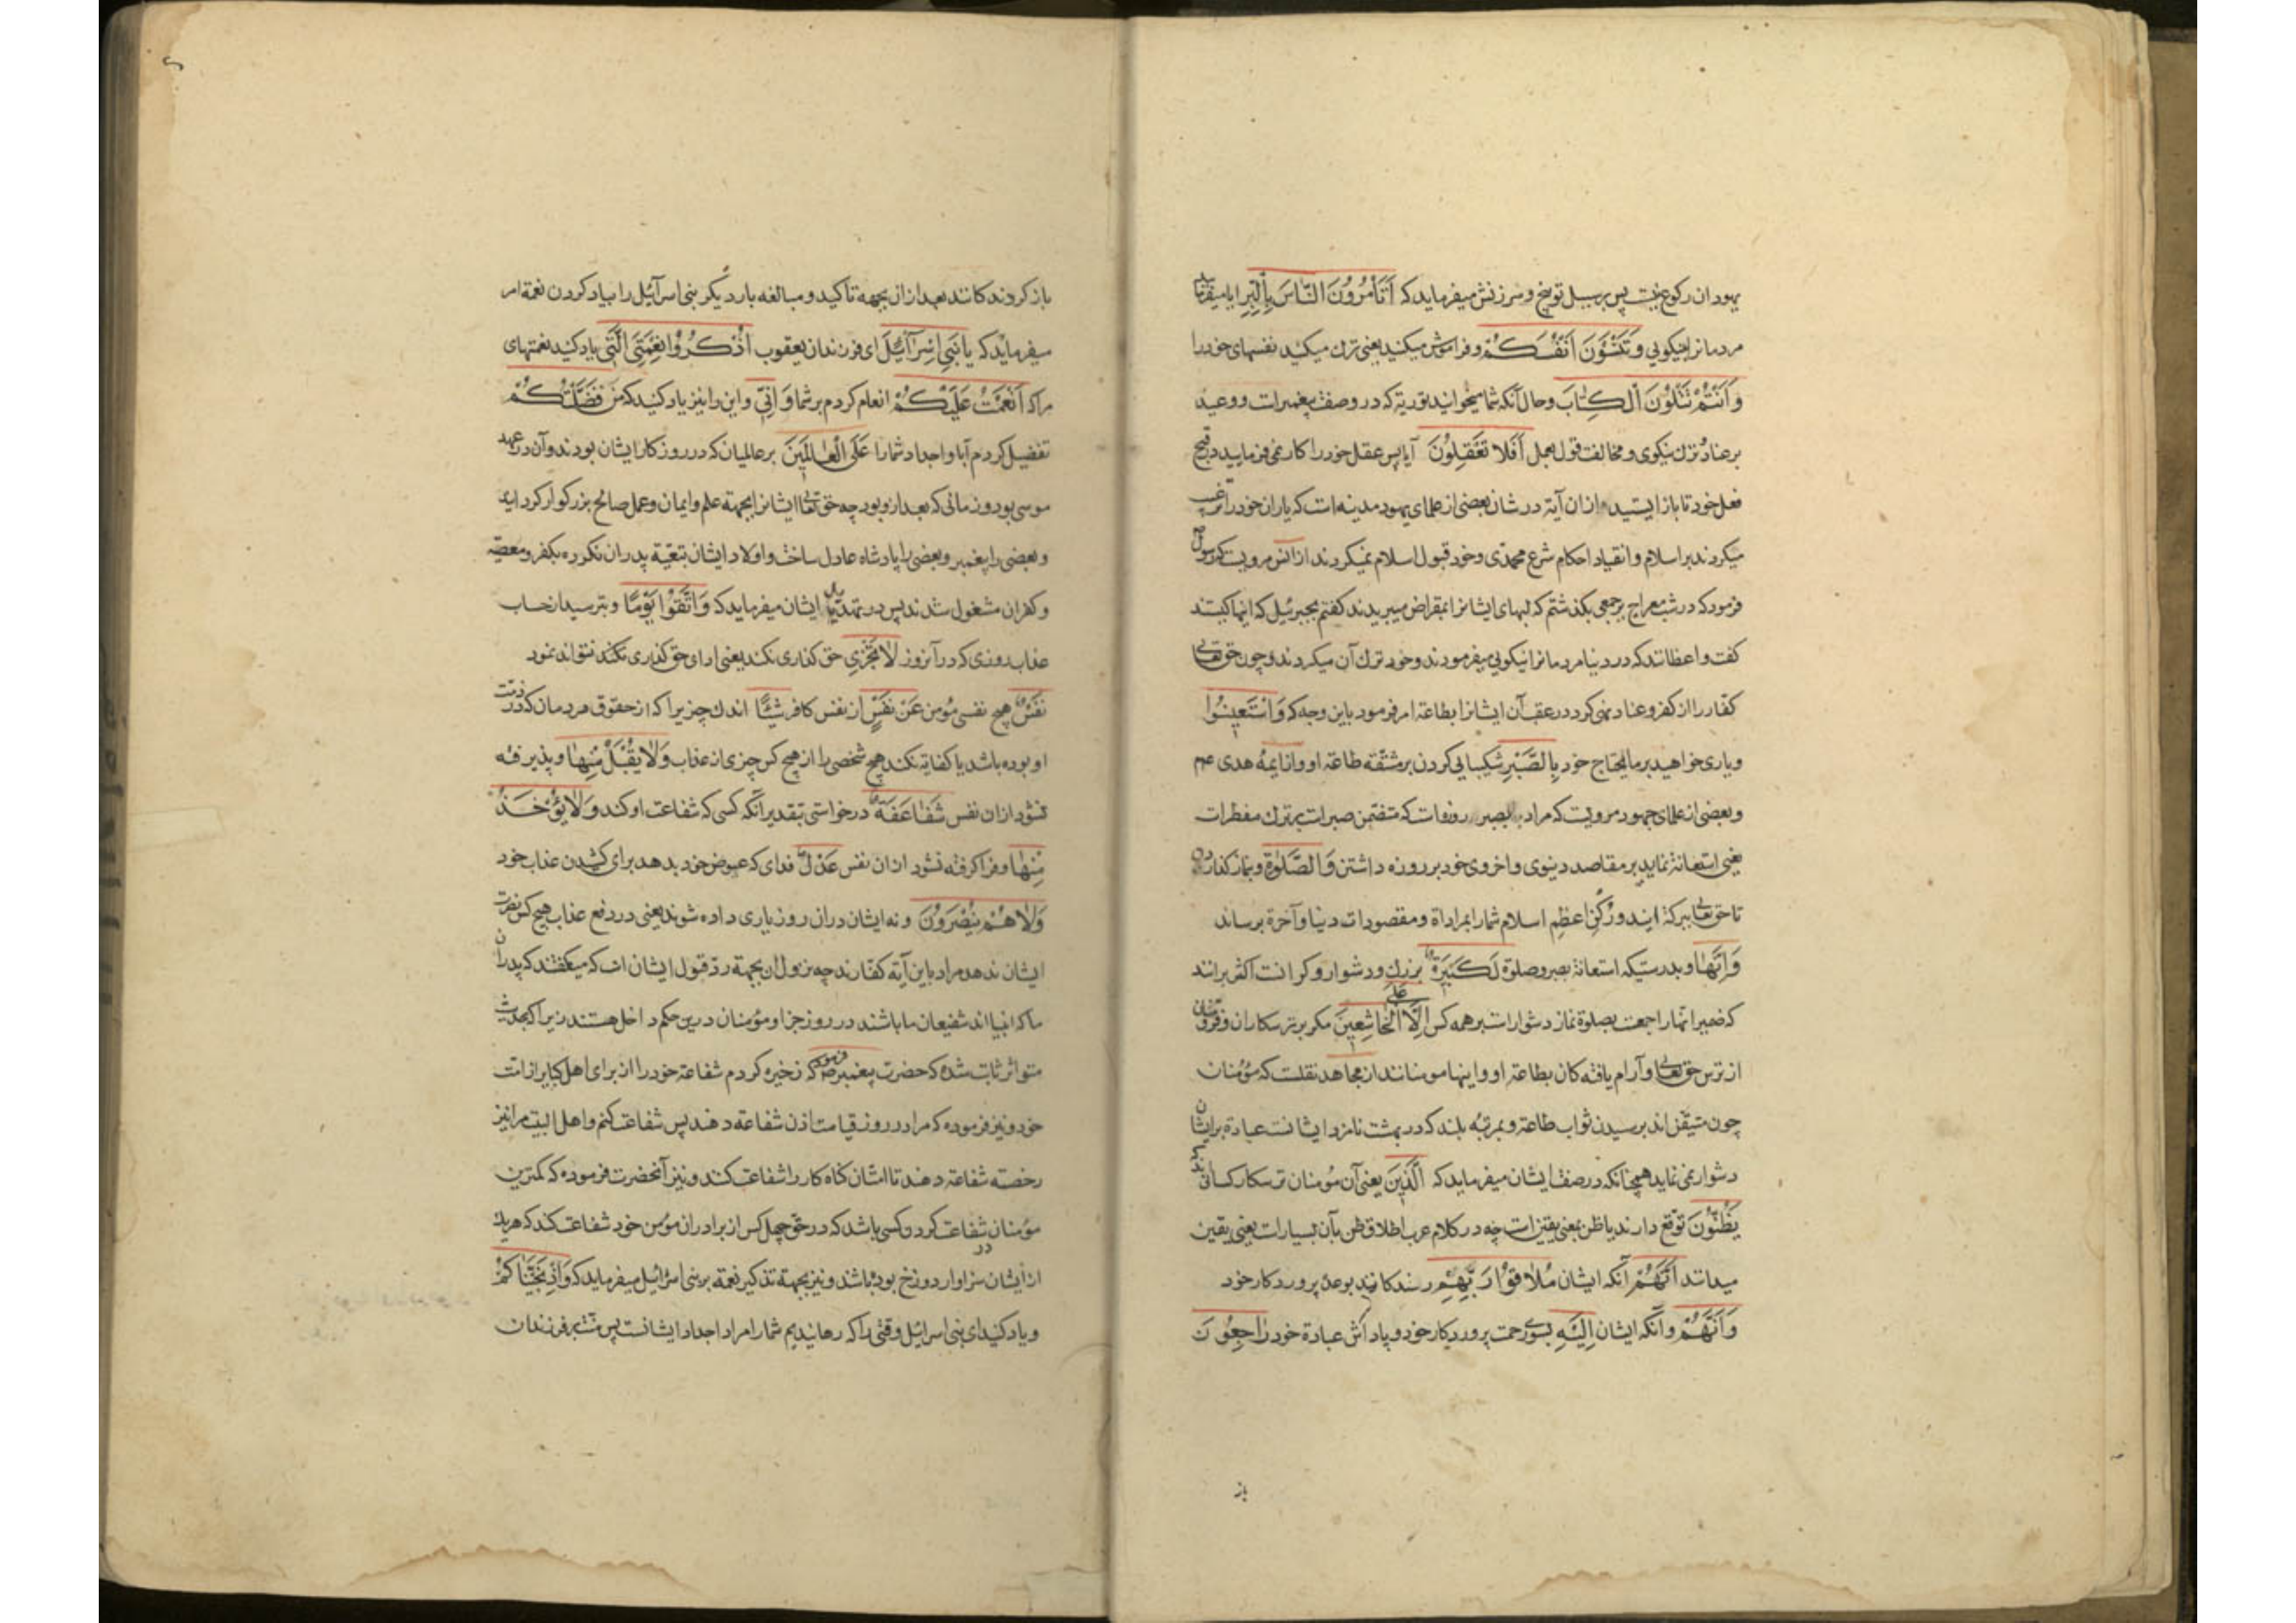 یهودان رکوع نیست پس بر سبیل توبیخ و سرزنش میفرماید که أَتَأْمُرُونَ النَّاسَ بِالْبِرِّ ایا میفرمائید
مردمانرا بنیکویی وَتَنْسَوْنَ أَنْفُسَكُمْ و فراموش میکنید یعنی ترک میکنید نفسهای خود را
وَأَنْتُمْ تَتْلُونَ الْكِتَابَ و حال آنکه شما میخوانید توریة که در وصف پیغمبرست و وعید
بر عناد و ترک نیکوی و مخالفت قول بعمل أَفَلَا تَعْقِلُونَ آیا پس عقل خود را کار نمی فرمایید در قبح
فعل خود تا باز ایستید ازان آیة در شان بعضی از علمای یهود مدینه است که یاران خود را ترغیب
میکردند بر اسلام و انقیاد احکام شرع محمدی و خود قبول اسلام نمیکردند از انس مرویست که رسول
فرمود که در شب معراج بر جمعی بگذشتم که لبهای ایشانرا بمقراض میبریدند گفتم بجبرئیل که اینها کیستند
گفت واعظانند که در دنیا مردمانرا نیکویی میفرمودند و خود ترک آن میکردند و چون حق تعالی
کفار را از کفر و عناد نهی کرد در عقب آن ایشانرا بطاعة امر فرمود باین وجه که وَاسْتَعِينُوا
و یاری خواهید بر مایحتاج خود بِالصَّبْرِ شکیبایی کردن بر مشقة طاعة او و از ایمهٔ هدی عم
و بعضی از علمای جمهور مرویست که مراد بصبر روزه است که متضمن صبر است بر ترک مفطرات
یعنی استعانة نمایید بر مقاصد دینوی و اخروی خود بر روزه داشتن وَالصَّلَوةِ و نماز گذاردن
تا حق تعالی ببرکة ایندو رکن اعظم اسلام شمارا بمراداة و مقصودات دنیا و آخرة برساند
وَإِنَّهَا و بدرستیکه استعانة بصبر و صلوة لَكَبِيرَةٌ بزرک و دشوار و کرانست اکثر برانند
که ضمیر انها راجعست بصلوة نماز دشوار است بر همه کس إِلَّا عَلَى الْخَاشِعِينَ مکر بر ترسکاران و فروتنان
از ترس حق تعالی و آرام یافته کان بطاعة او و اینها مومنانند از مجاهد نقلست که مؤمنان
چون متیقن اند برسیدن ثواب طاعة و بمرتبه بلند که در بهشت نامزد ایشانست عبادة بر ایشان
دشوار نمی نماید همچنانکه در صفت ایشان میفرماید که الَّذِينَ یعنی آن مؤمنان ترسکار کسانی اند که
يَظُنُّونَ توقع دارند یا ظن بمعنی یقین است چه در کلام عرب اطلاق ظن بآن بسیار است یعنی یقین
میدانند أَنَّهُمْ آنکه ایشان مُلَاقُوا رَبِّهِمْ رسندکانند بوعدهٔ پروردکار خود
وَأَنَّهُمْ و آنکه ایشان إِلَيْهِ بسوی رحمت پروردیکار خود و پاداش عبادة خود رَاجِعُونَ
باز
باز کروندکانند بعد از ان بجهه تاکید و مبالغه بار دیکر بنی اسرآئیل را بیاد کردن نعمة امر
میفرماید که يَا بَنِي إِسْرَائِيلَ ای فرزندان یعقوب اذْكُرُوا نِعْمَتِيَ الَّتِي یاد کنید نعمتهای
مرا که أَنْعَمْتُ عَلَيْكُمْ انعام کردم بر شما وَأَنِّي و این را نیز یاد کنید که من فَضَّلْتُكُمْ
تفضیل کردم آبا و اجداد شما را عَلَى الْعَالَمِينَ بر عالمیان که در روزکار ایشان بودند و آن در عهد
موسی بود و زمانی که بعد ازو بود چه حق تعالی ایشانرا بجهة علم و ایمان و عمل صالح بزرکوار کردانید
و بعضی را پیغمبر و بعضی را پادشاه عادل ساخت و اولاد ایشان تبعیة پدران نکرده بکفر و معصیة
و کفران مشغول شدند پس در تهدید ایشان میفرماید که وَاتَّقُوا يَوْمًا و بترسید از حساب
عذاب روزی که در آنروز لَا تَجْزِي حق کذاری نکند یعنی ادای حق کذاری نکند نتواند نمود
نَفْسٌ هیچ نفسی مؤمن عَنْ نَفْسٍ از نفس کافر شَيْئًا اندک چیزی را که از حقوق مردمان که در ذمت
او بوده باشد یا کفایة نکند هیچ شخصی را از هیچ کس چیزی از عذاب وَلَا يُقْبَلُ مِنْهَا و پذیرفته
نشود ازان نفس شَفَاعَةٌ درخواستی بتقدیر آنکه کسی که شفاعت او کند وَلَا يُؤْخَذُ
مِنْهَا و فرا کرفته نشود ازان نفس عَدْلٌ فدای که عوض خود بدهد برای کشیدن عذاب خود
وَلَا هُمْ يُنْصَرُونَ و نه ایشان دران روز یاری داده شوند یعنی در دفع عذاب هیچ کس نصرت
ایشان ندهد مراد باین آیه کفارند چه نزول ان بجهة رد قول ایشان است که میکفتند که پدران
ما که انبیا اند شفیعان ما باشند در روز جزا و مؤمنان درین حکم داخل هستند زیرا که بحدیث
متواتر ثابت شده که حضرت پیغمبر ص فرمود که ذخیره کردم شفاعة خود را از برای اهل کبایر از امت
خود و نیز فرموده که مرا در روز قیامت اذن شفاعة دهند پس شفاعت کنم و اهل البیت مرا نیز
رخصة شفاعة دهند تا امتان کناه کار را شفاعت کنند و نیز آنحضرت فرموده که کمترین
مؤمنان شفاعت کرد و کسی باشد که در حق چهل کس از برادران مؤمن خود شفاعت کند که هر یک
از ایشان سزاوار دوزخ بوده باشند و نیز بجهة تذکیر نعمة بر بنی اسرائیل میفرماید که وَإِذْ نَجَّيْنَاكُمْ
و یاد کنید ای بنی اسرائیل وقتی را که رهانیدیم شما را مراد اجداد ایشانست پس منت بر فرزندان